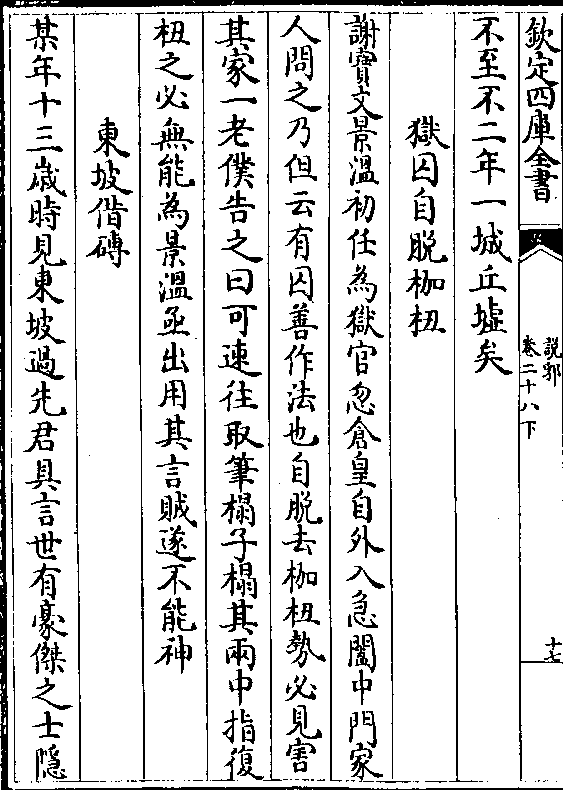 欽定四庫全書
說郛
卷二十八下
十七
不至不二年一城丘墟矣
獄囚自脫枷杻
謝寳文景溫初任為獄官忽倉皇自外入急闔中門家
人問之乃但云有囚善作法也自脫去枷杻勢必見害
其家一老僕告之曰可速往取筆榻子榻其兩中指復
杻之必無能為景溫亟出用其言賊遂不能神
東坡偕磚
某年十三嵗時見東坡過先君具言世有豪傑之士隱